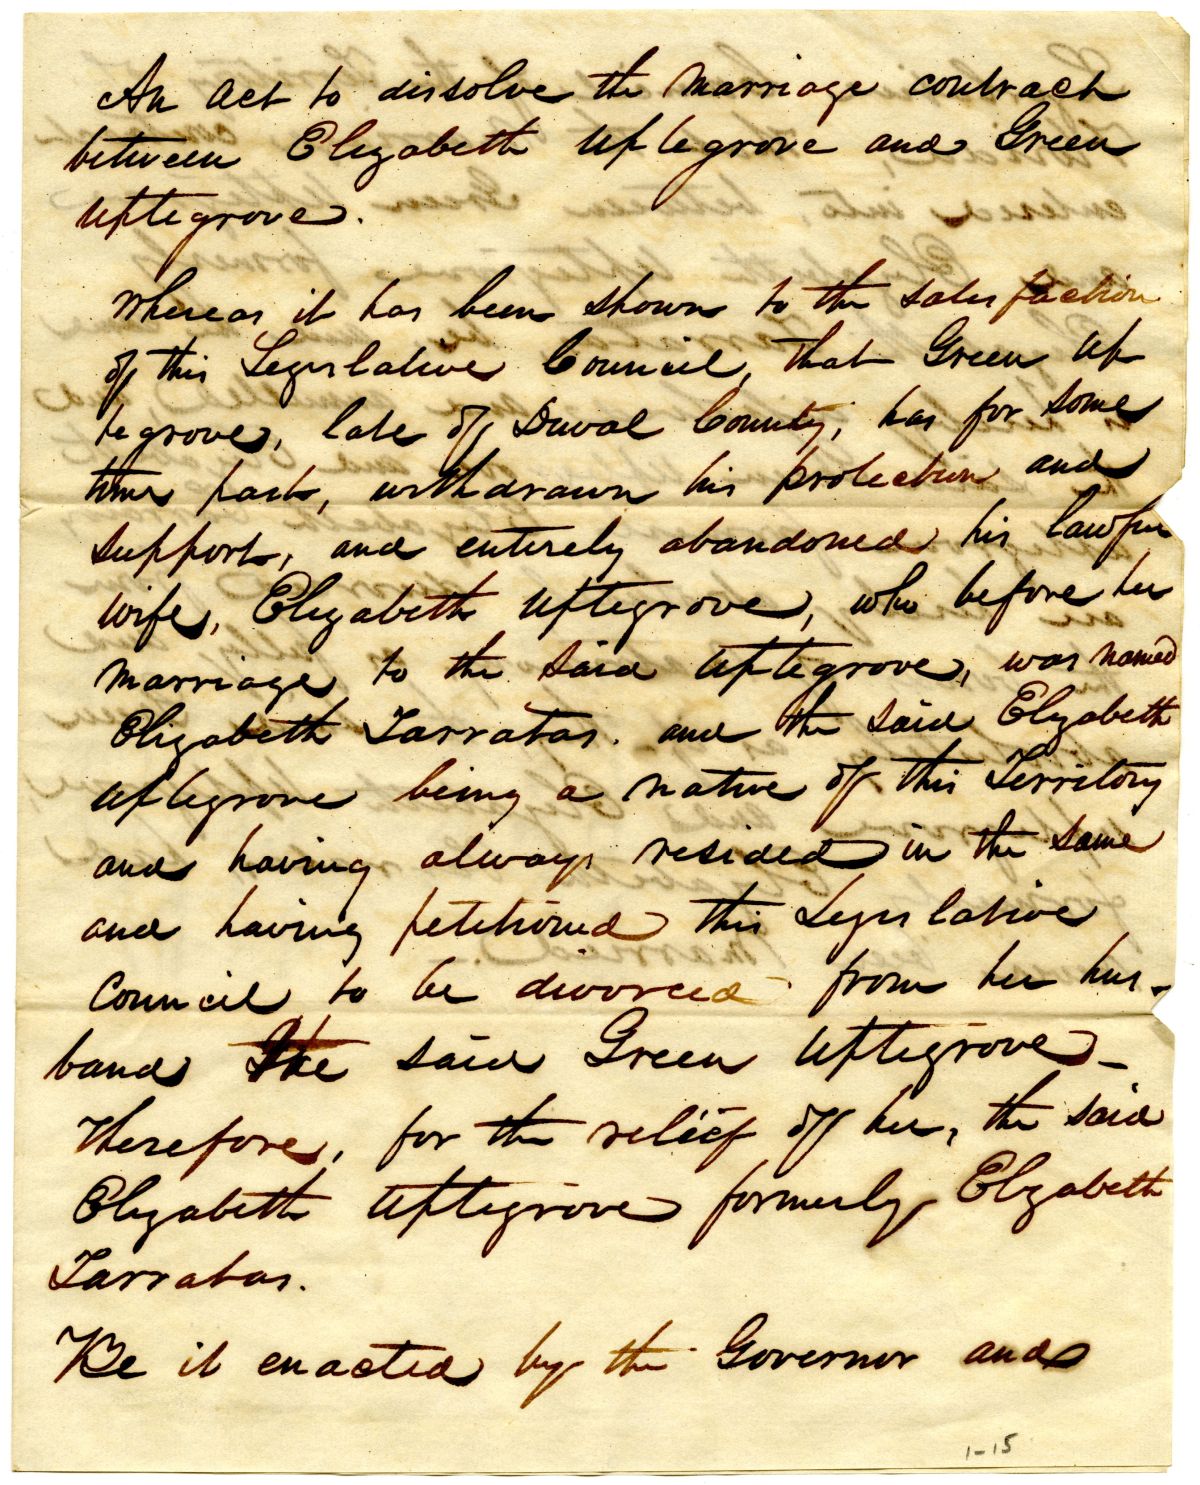 An act to dissolve the marriage contract
between Elizabeth Uptegrove and Green
Uptegrove.
Whereas it has been shown to the satisfaction
of this Legislative Council, that Green Up
tegrove, late of Duval County, has for some
time past, withdrawn his protection and
support, and entirely abandoned his lawful
wife, Elizabeth Uptegrove, who before her
marriage to the said Uptegrove, was named
Elizabeth Tarratas. and the said Elizabeth
Uptegrove being a native of this Territory
and having always resided in the same
and having petitioned this Legislative
Council to be divorced from her hus-
band the said Green Uptegrove -
Therefore, for the relief of her, the said
Elizabeth Uptegrove formerly Elizabeth
Tarratas.
Be it enacted by the Governor and
1-15